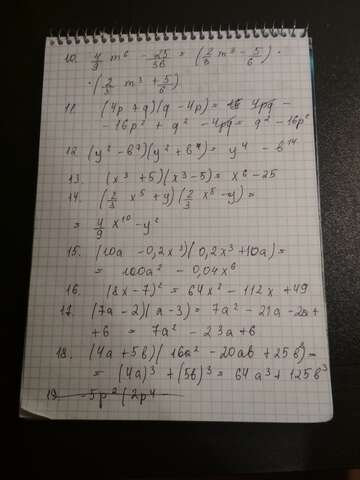 10. 4/9 m⁶ - 25/36 = (2/3 m³ - 5/6) ·
· (2/3 m³ + 5/6)
11. (4p + q)(q - 4p) = 4pq -
- 16p² + q² - 4pq = q² - 16p²
12. (y² - b⁷)(y² + b⁷) = y⁴ - b¹⁴
13. (x³ + 5)(x³ - 5) = x⁶ - 25
14. (2/3 x⁵ + y)(2/3 x⁵ - y) =
= 4/9 x¹⁰ - y²
15. (10a - 0,2x³)(0,2x³ + 10a) =
= 100a² - 0,04x⁶
16. (8x - 7)² = 64x² - 112x + 49
17. (7a - 2)(a - 3) = 7a² - 21a - 2a +
+ 6 = 7a² - 23a + 6
18. (4a + 5b)(16a² - 20ab + 25b²) =
= (4a)³ + (5b)³ = 64a³ + 125b³
19. -5p²(2p4